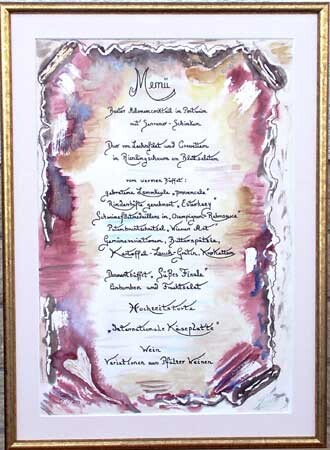 Menü
Bunter Melonencocktail in Portwein
mit Serrano-Schinken
Duo von Lachsfilet und Garnelen
in Rieslingschaum im Blätterteig
vom warmen Büffet:
gebratene Lammkeule "provencale"
Rinderhüfte geschmort,
Schweinefiletmedaillons in Champignon-Rahmsauce
Putenbrustschnitzel "Wiener Art"
Gemüsevariationen, Butterspätzle,
Kartoffel-Lauch-Gratin, Kroketten
Dessertbüffet "Süßes Finale"
Eisbomben und Fruchtsalat
Hochzeitstorte
"Internationale Käseplatte"
Wein
Variationen aus Pfälzer Weinen